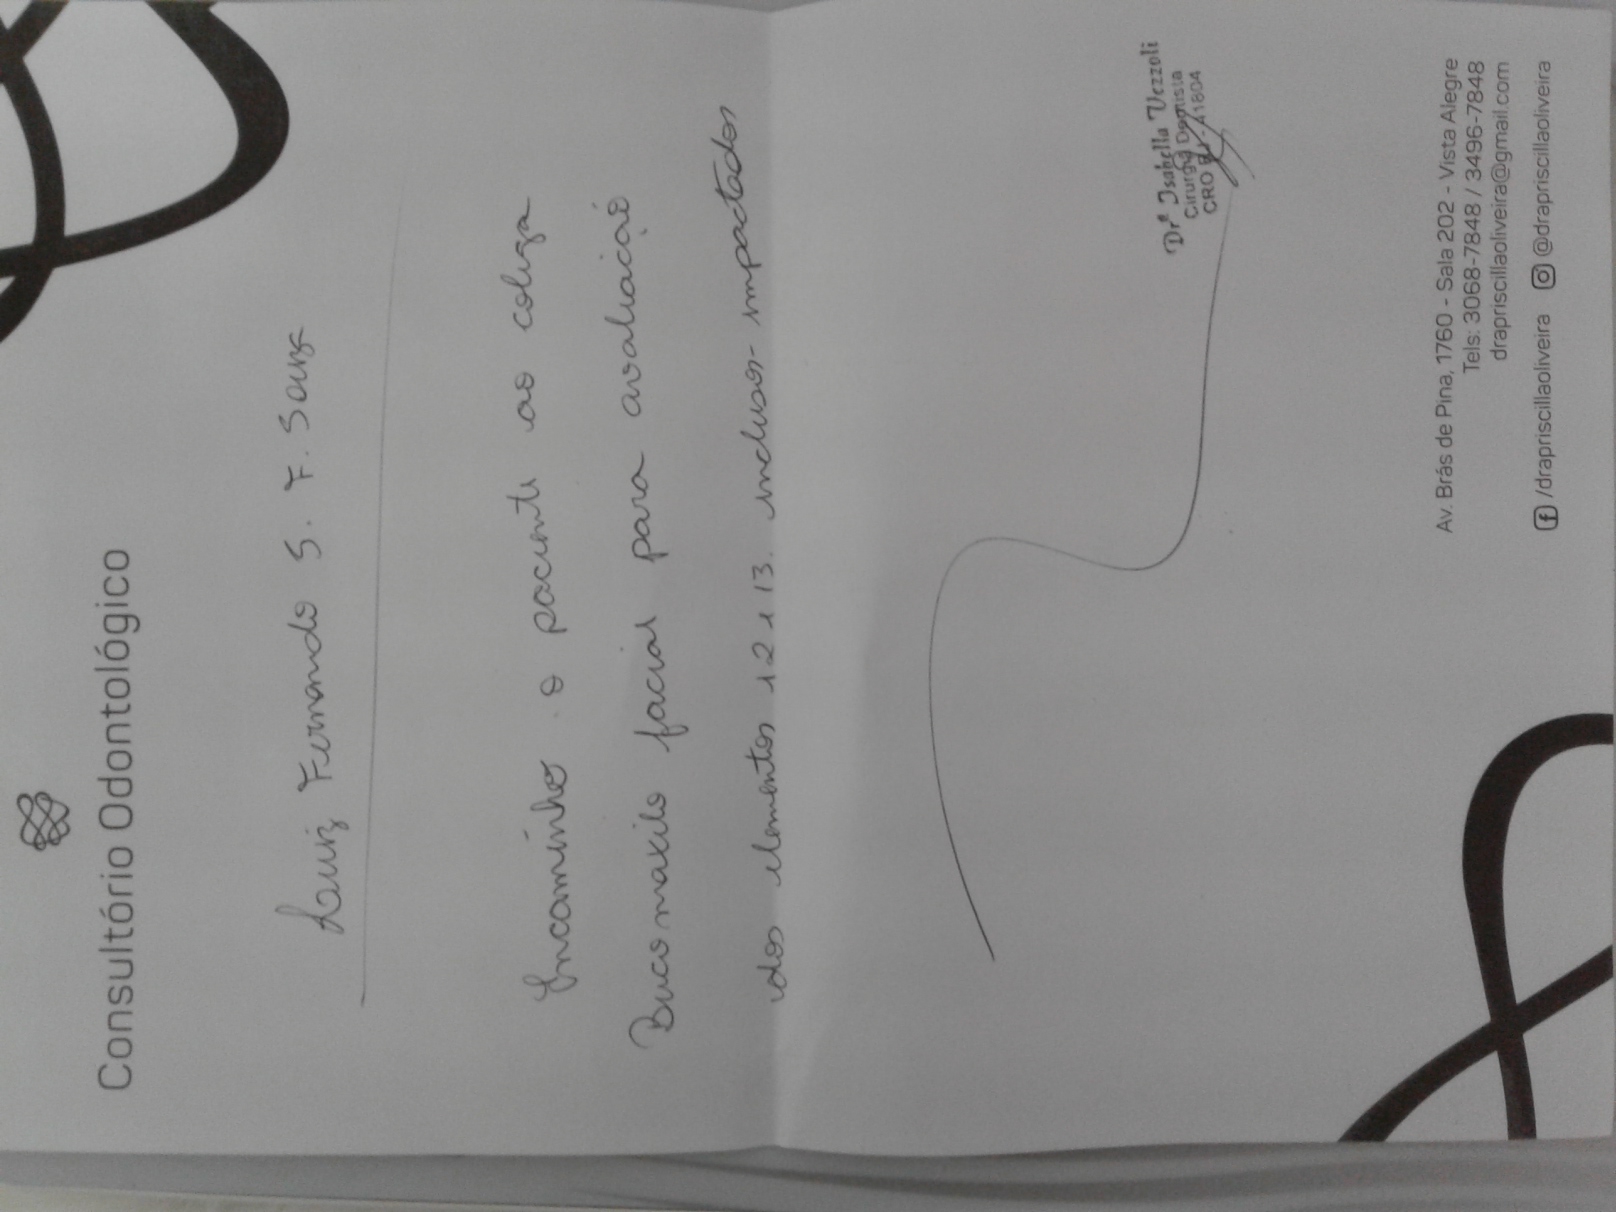 Consultório Odontológico
Luiz Fernando S. F. Souz
Encaminho o paciente ao colega
Bucomaxilo facial para avaliação
dos elementos 12 e 13. inclusos- impactados
Drª Isabella Vezzoli
Cirurgiã Dentista
CRO 41804
Av. Brás de Pina, 1760 - Sala 202 - Vista Alegre
Tels: 3068-7848 / 3496-7848
drapriscillaoliveira@gmail.com
/drapriscillaoliveira @drapriscillaoliveira